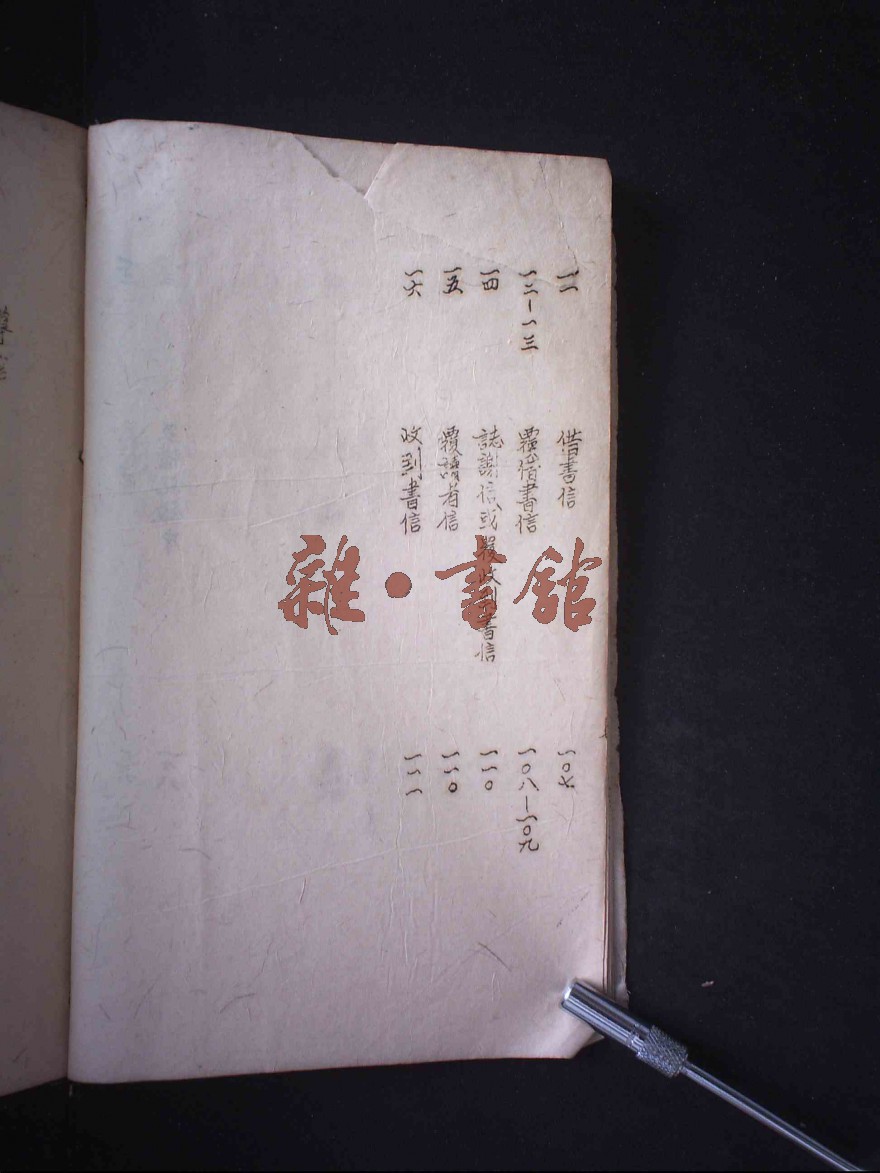 一一 借書信 一〇七
一二－一三 覆借書信 一〇八－一〇九
一四 誌謝信或報收到書信 一一〇
一五 覆讀者信 一一〇
一六 收到書信 一一一
雜·書館